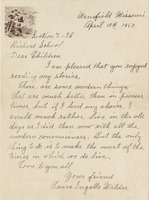 Mansfield Missouri
April 18th 1950
Section 7-38
Richard School
Dear Children,
I am pleased that you enjoyed
reading my stories.
There are some modern things
that are much better than in pioneer
times, but if I had my choice, I
would much rather live in the old
days as I did than now with all the
modern conveniences. But the only
thing to do is to make the most of the
times in which we do live.
Love to you all
Your friend
Laura Ingalls Wilder